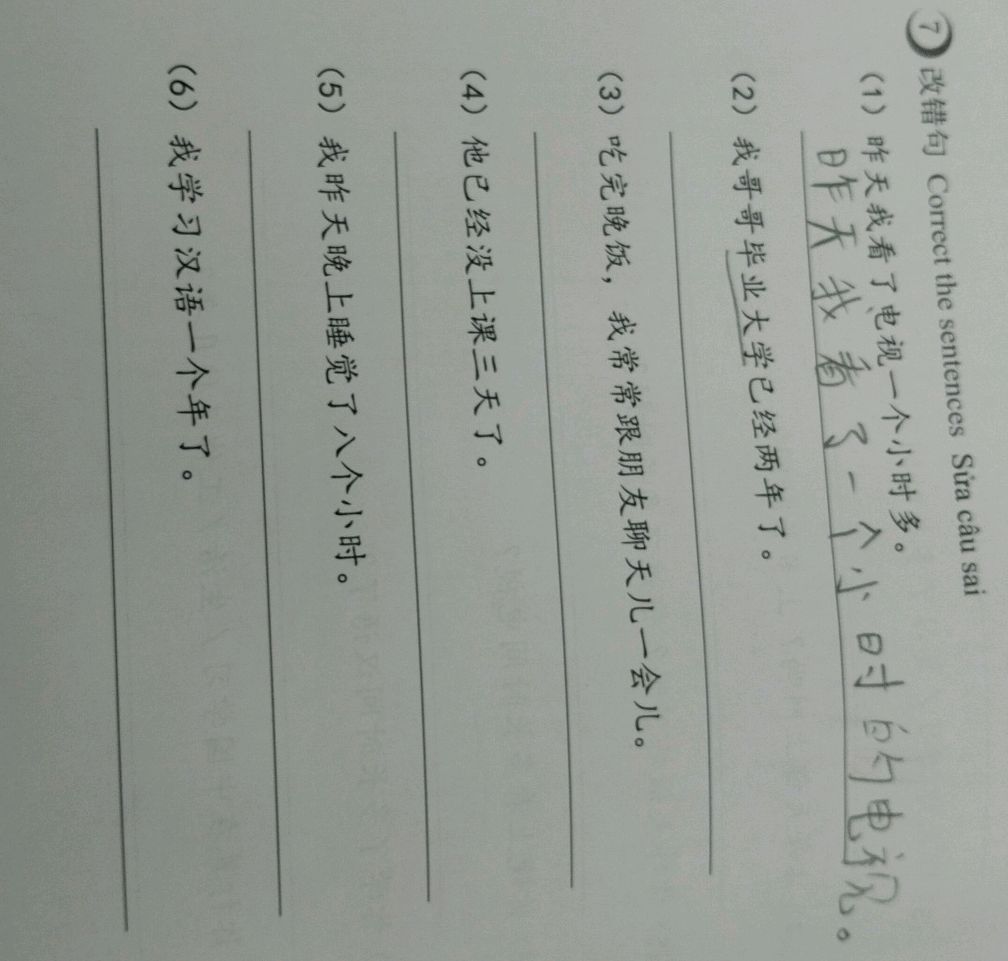 7 改错句 Correct the sentences Sửa câu sai
(1) 昨天我看了电视一个小时多。
昨天我看了一个小时的电视。
(2) 我哥哥毕业大学已经两年了。
(3) 吃完晚饭，我常常跟朋友聊天儿一会儿。
(4) 他已经没上课三天了。
(5) 我昨天晚上睡觉了八个小时。
(6) 我学习汉语一个年了。